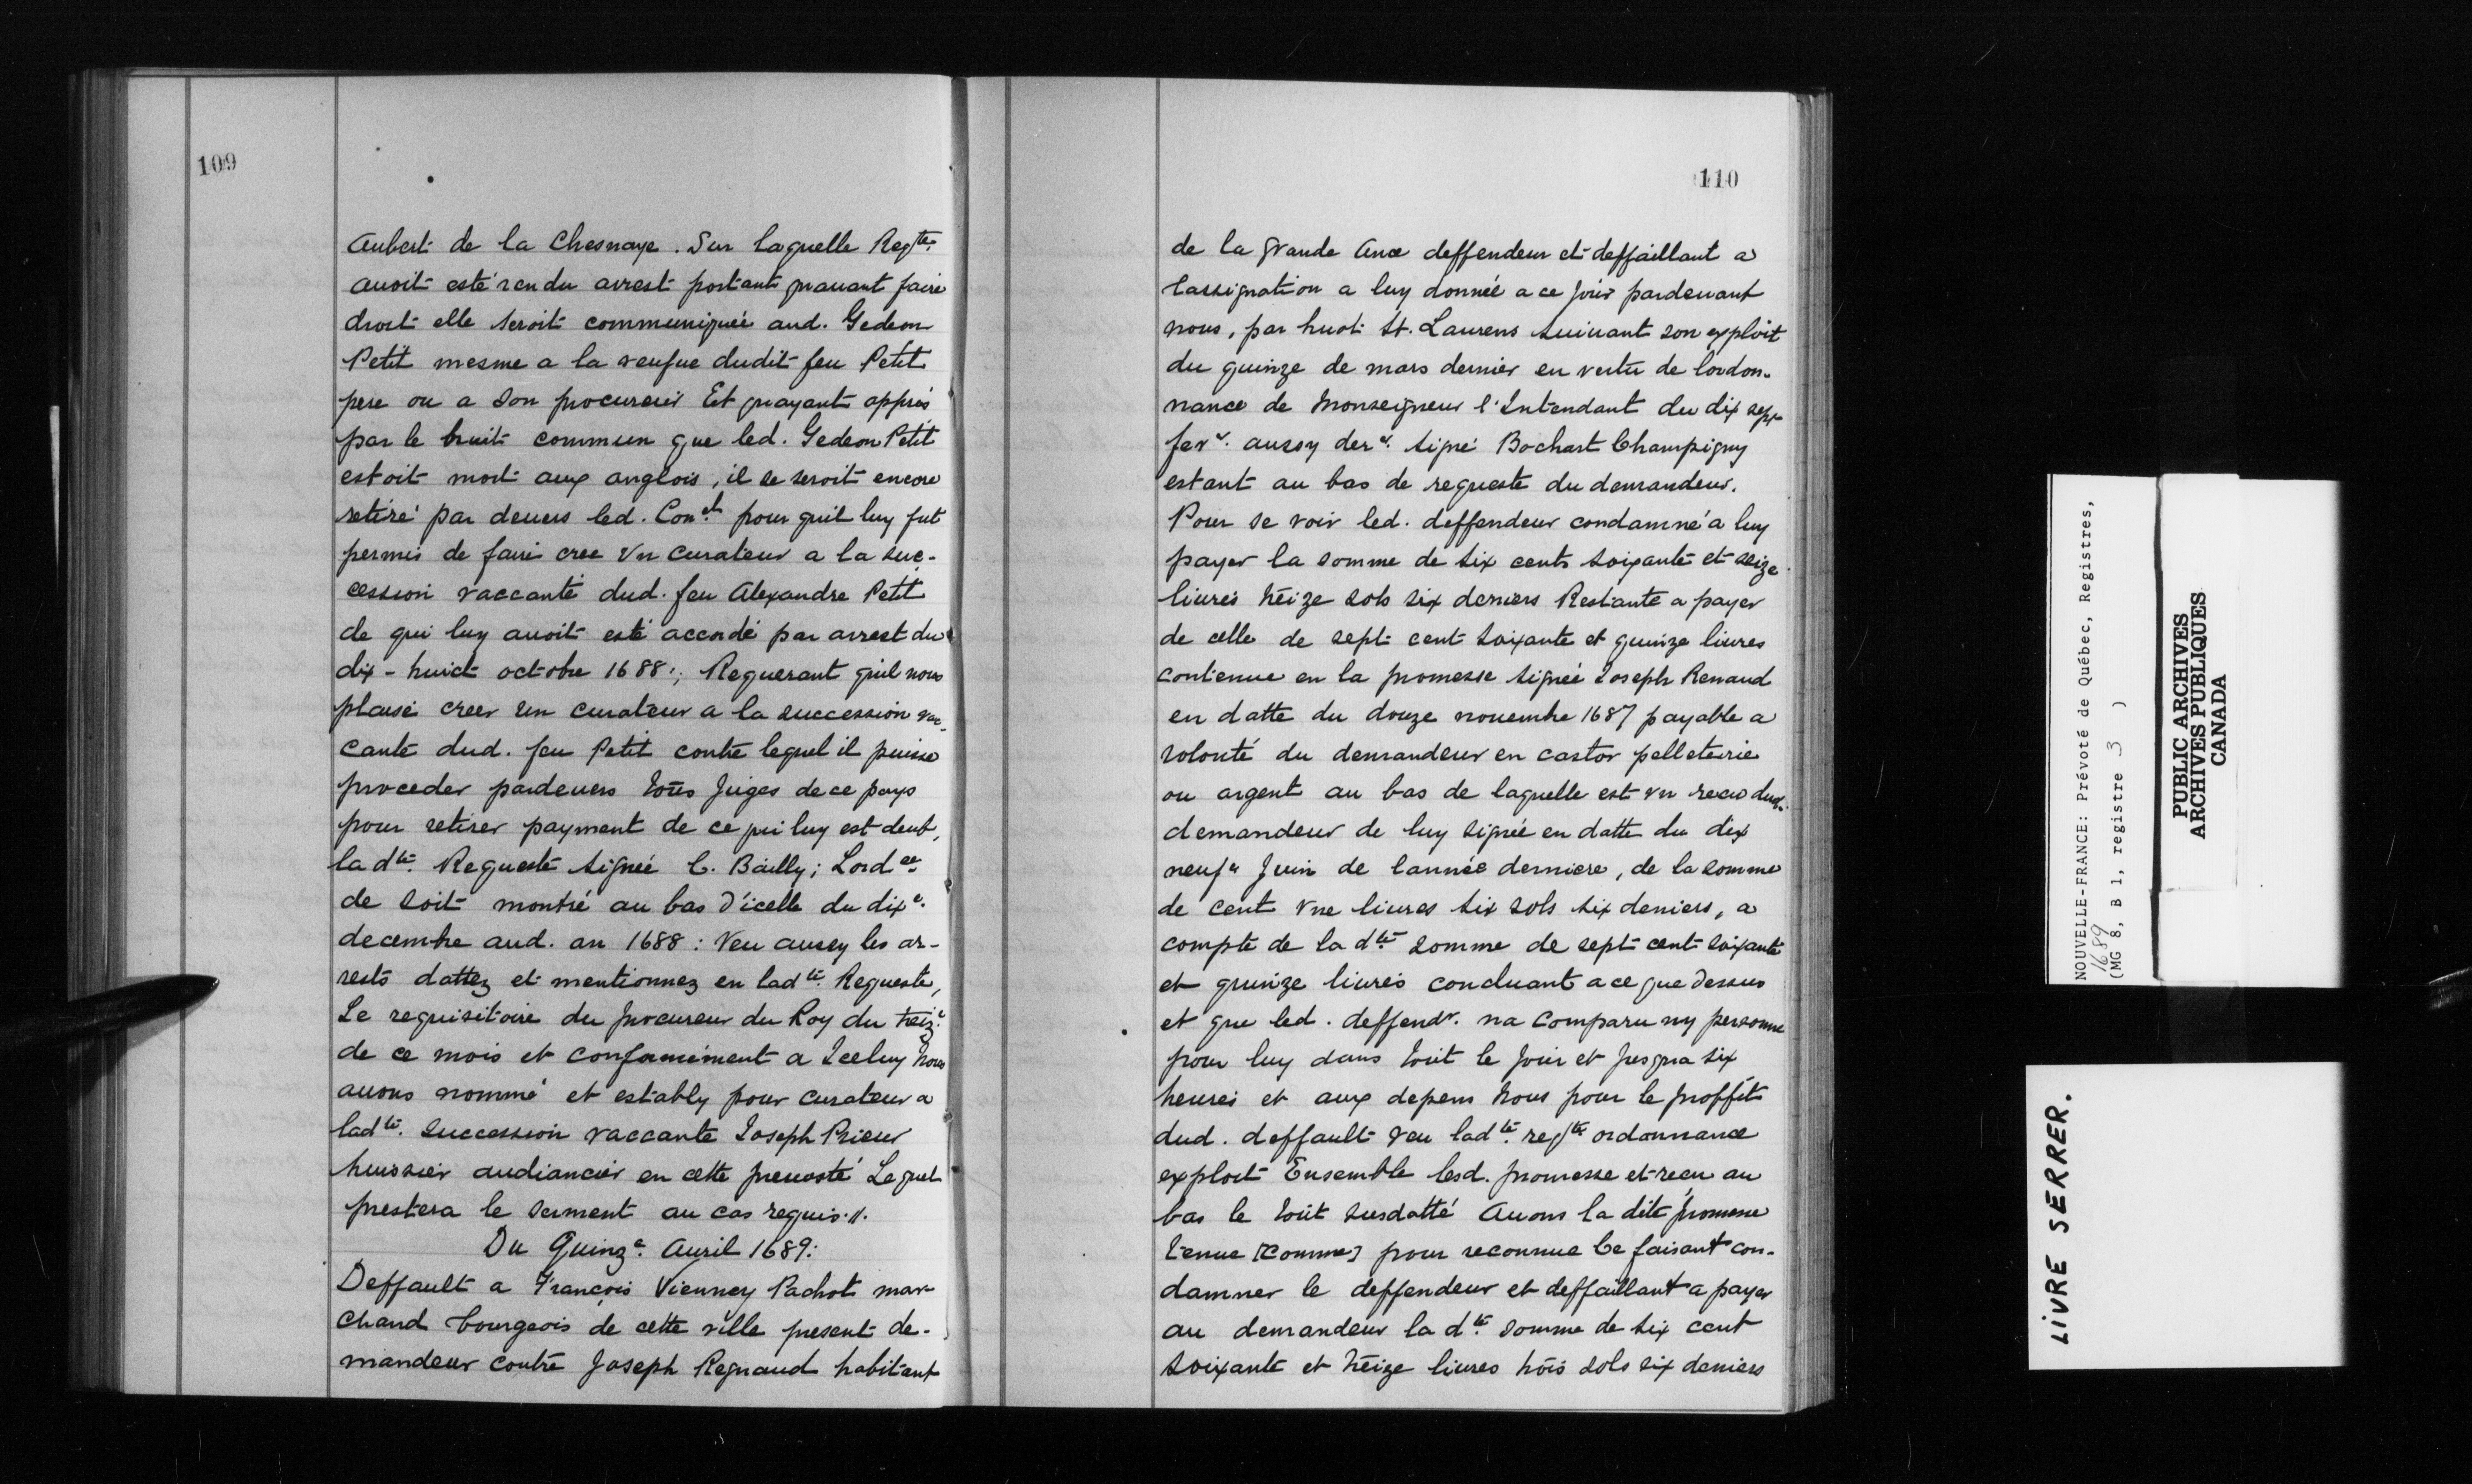 109
Aubert de la Chesnaye. Sur laquelle Reqte.
auoit esté rendu arrest portant quauant faire
droit elle seroit communiquée aud. Gedeon
Petit mesme a la veufue dudit feu Petit
pere ou a son procureur Et quayant appris
par le bruit commun que led. Gedeon Petit
estoit mort aux anglois, il se seroit encore
retiré par deuers led. Conel. pour quil luy fut
permis de faire cree vn curateur a la suc-
cession vaccante dud. feu Alexandre Petit
de qui luy auoit esté accordé par arrest du
dix-huict octobre 1688:, Requerant quil nous
plaise creer un curateur a la succession vac-
cante dud. feu Petit contre lequel il puisse
proceder pardeuers tous juges de ce pays
pour retirer payment de ce qui luy est deub,
la dte. Requeste signée C. Bailly; Lordce.
de soit montré au bas d'icelle du dixe.
decembre aud. an 1688: Veu aussy les ar-
rests dattez et mentionnez en ladte. Requeste,
Le requisitoire du procureur du Roy du treize.
de ce mois et conformement a Iceluy Nous
auons nommé et establÿ pour curateur a
ladte. succession vaccante Joseph Prieur
huissier audiancier en cette preuosté Lequel
prestera le serment au cas requis.//.
Du Quinze. Auril 1689:
Deffault a François Vienney Pachot mar-
chand bourgeois de cette ville present de-
mandeur contre Joseph Regnaud habitant
110
de la grande Ance deffendeur et deffaillant a
lassignation a luy donnée a ce jour pardeuant
nous, par huot St. Laurens suiuant son exploit
du quinze de mars dernier en vertu de lordon-
nance de Monseigneur l'Intendant du dix sept
fevr. aussy derr. signé Bochart Champigny
estant au bas de requeste du demandeur.
Pour se voir led. deffendeur condamné a luy
payer la somme de six cents soixante et seize
liures treize sols six deniers Restante a payer
de celle de sept cent soixante et quinze liures
contenue en la promesse signée Joseph Renaud
en datte du douze nouembre 1687 payable a
volonté du demandeur en castor pelleterie
ou argent au bas de laquelle est vn recu dud.
demandeur de luy signée en datte du dix
neufe Juin de lannée derniere, de la somme
de cent vne liures six sols six deniers, a
compte de la dte somme de sept cent soixante
et quinze liures concluant a ce que dessus
et que led. deffendr. na comparu ny personne
pour luy dans tout le jour et jusqua six
heures et aux depens Nous pour le proffit
dud. deffault veu ladte. reqte ordonnance
exploit Ensemble lesd. promesse et recu au
bas le tout susdatté Auons la dite promesse
tenue [comme] pour reconnue Ce faisant con-
damner le deffendeur et deffaillant a payer
au demandeur la dte. somme de six cent
soixante et treize liures trois sols six deniers
NOUVELLE-FRANCE: Prévoté de Québec, Registres,
1689
(MG 8, B 1, registre 3 )
PUBLIC ARCHIVES
ARCHIVES PUBLIQUES
CANADA
LIVRE SERRER.